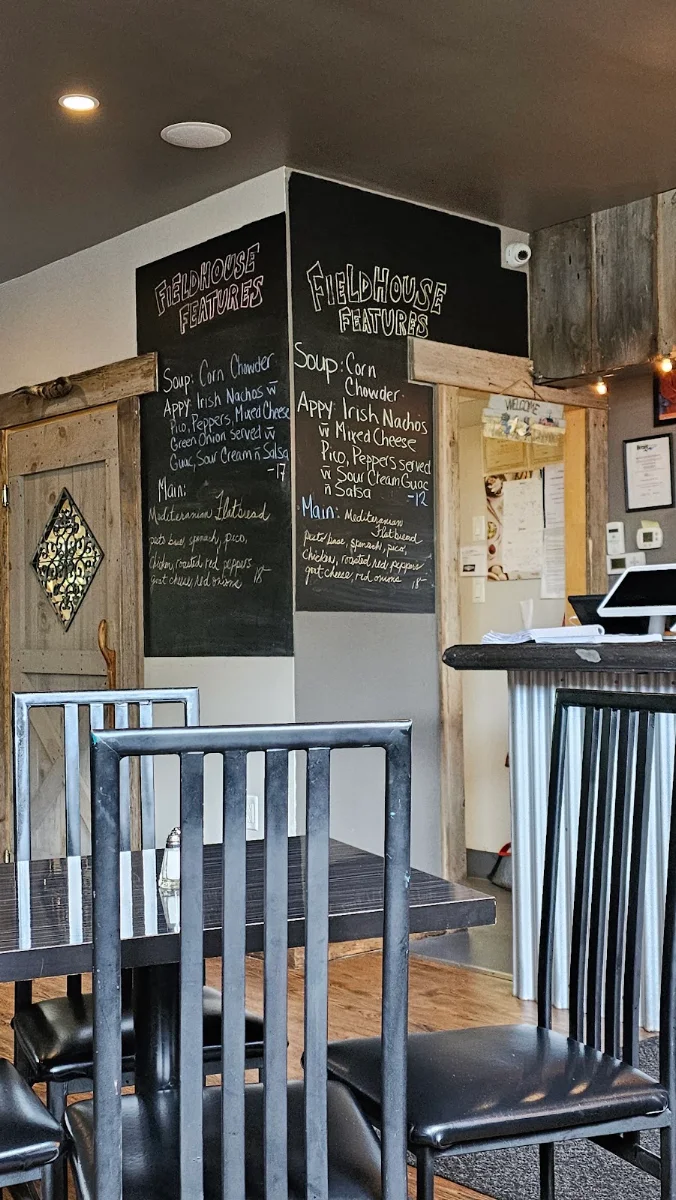 FIELDHOUSE
FEATURES
Soup: Corn Chowder
Appy: Irish Nachos w̄
Pico, Peppers, Mixed Cheese
Green Onion served w̄
Guac, Sour Cream n̄ Salsa
-17
Main:
Mediterranean Flatbread
pesto base, spinach, pico,
chicken, roasted red peppers
goat cheese, red onions 18-
FIELDHOUSE
FEATURES
Soup: Corn
Chowder
Appy: Irish Nachos
w̄ Mixed Cheese
Pico, Peppers served
w̄ Sour Cream Guac
n̄ Salsa -12
Main: Mediterranean
Flatbread
pesto base, spinach, pico,
chicken, roasted red peppers
goat cheese, red onions 18-
WELCOME